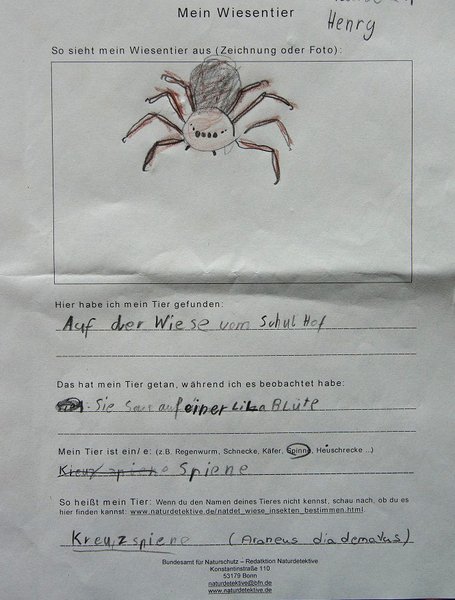 Mein Wiesentier
Henry
So sieht mein Wiesentier aus (Zeichnung oder Foto):
Hier habe ich mein Tier gefunden:
Auf der Wiese vom Schul Hof
Das hat mein Tier getan, während ich es beobachtet habe:
Sie auf einer Lila BLüte
Mein Tier ist ein/e: (z.B. Regenwurm, Schnecke, Käfer, Spinne, Heuschrecke ...)
Spiene
So heißt mein Tier: Wenn du den Namen deines Tieres nicht kennst, schau nach, ob du es
hier finden kannst: www.naturdetektive.de/natdet_wiese_insekten_bestimmen.html
Kreuzspiene (Araneus diadematus)
Bundesamt für Naturschutz – Redaktion Naturdetektive
Konstantinstraße 110
53179 Bonn
naturdetektive@bfn.de
www.naturdetektive.de